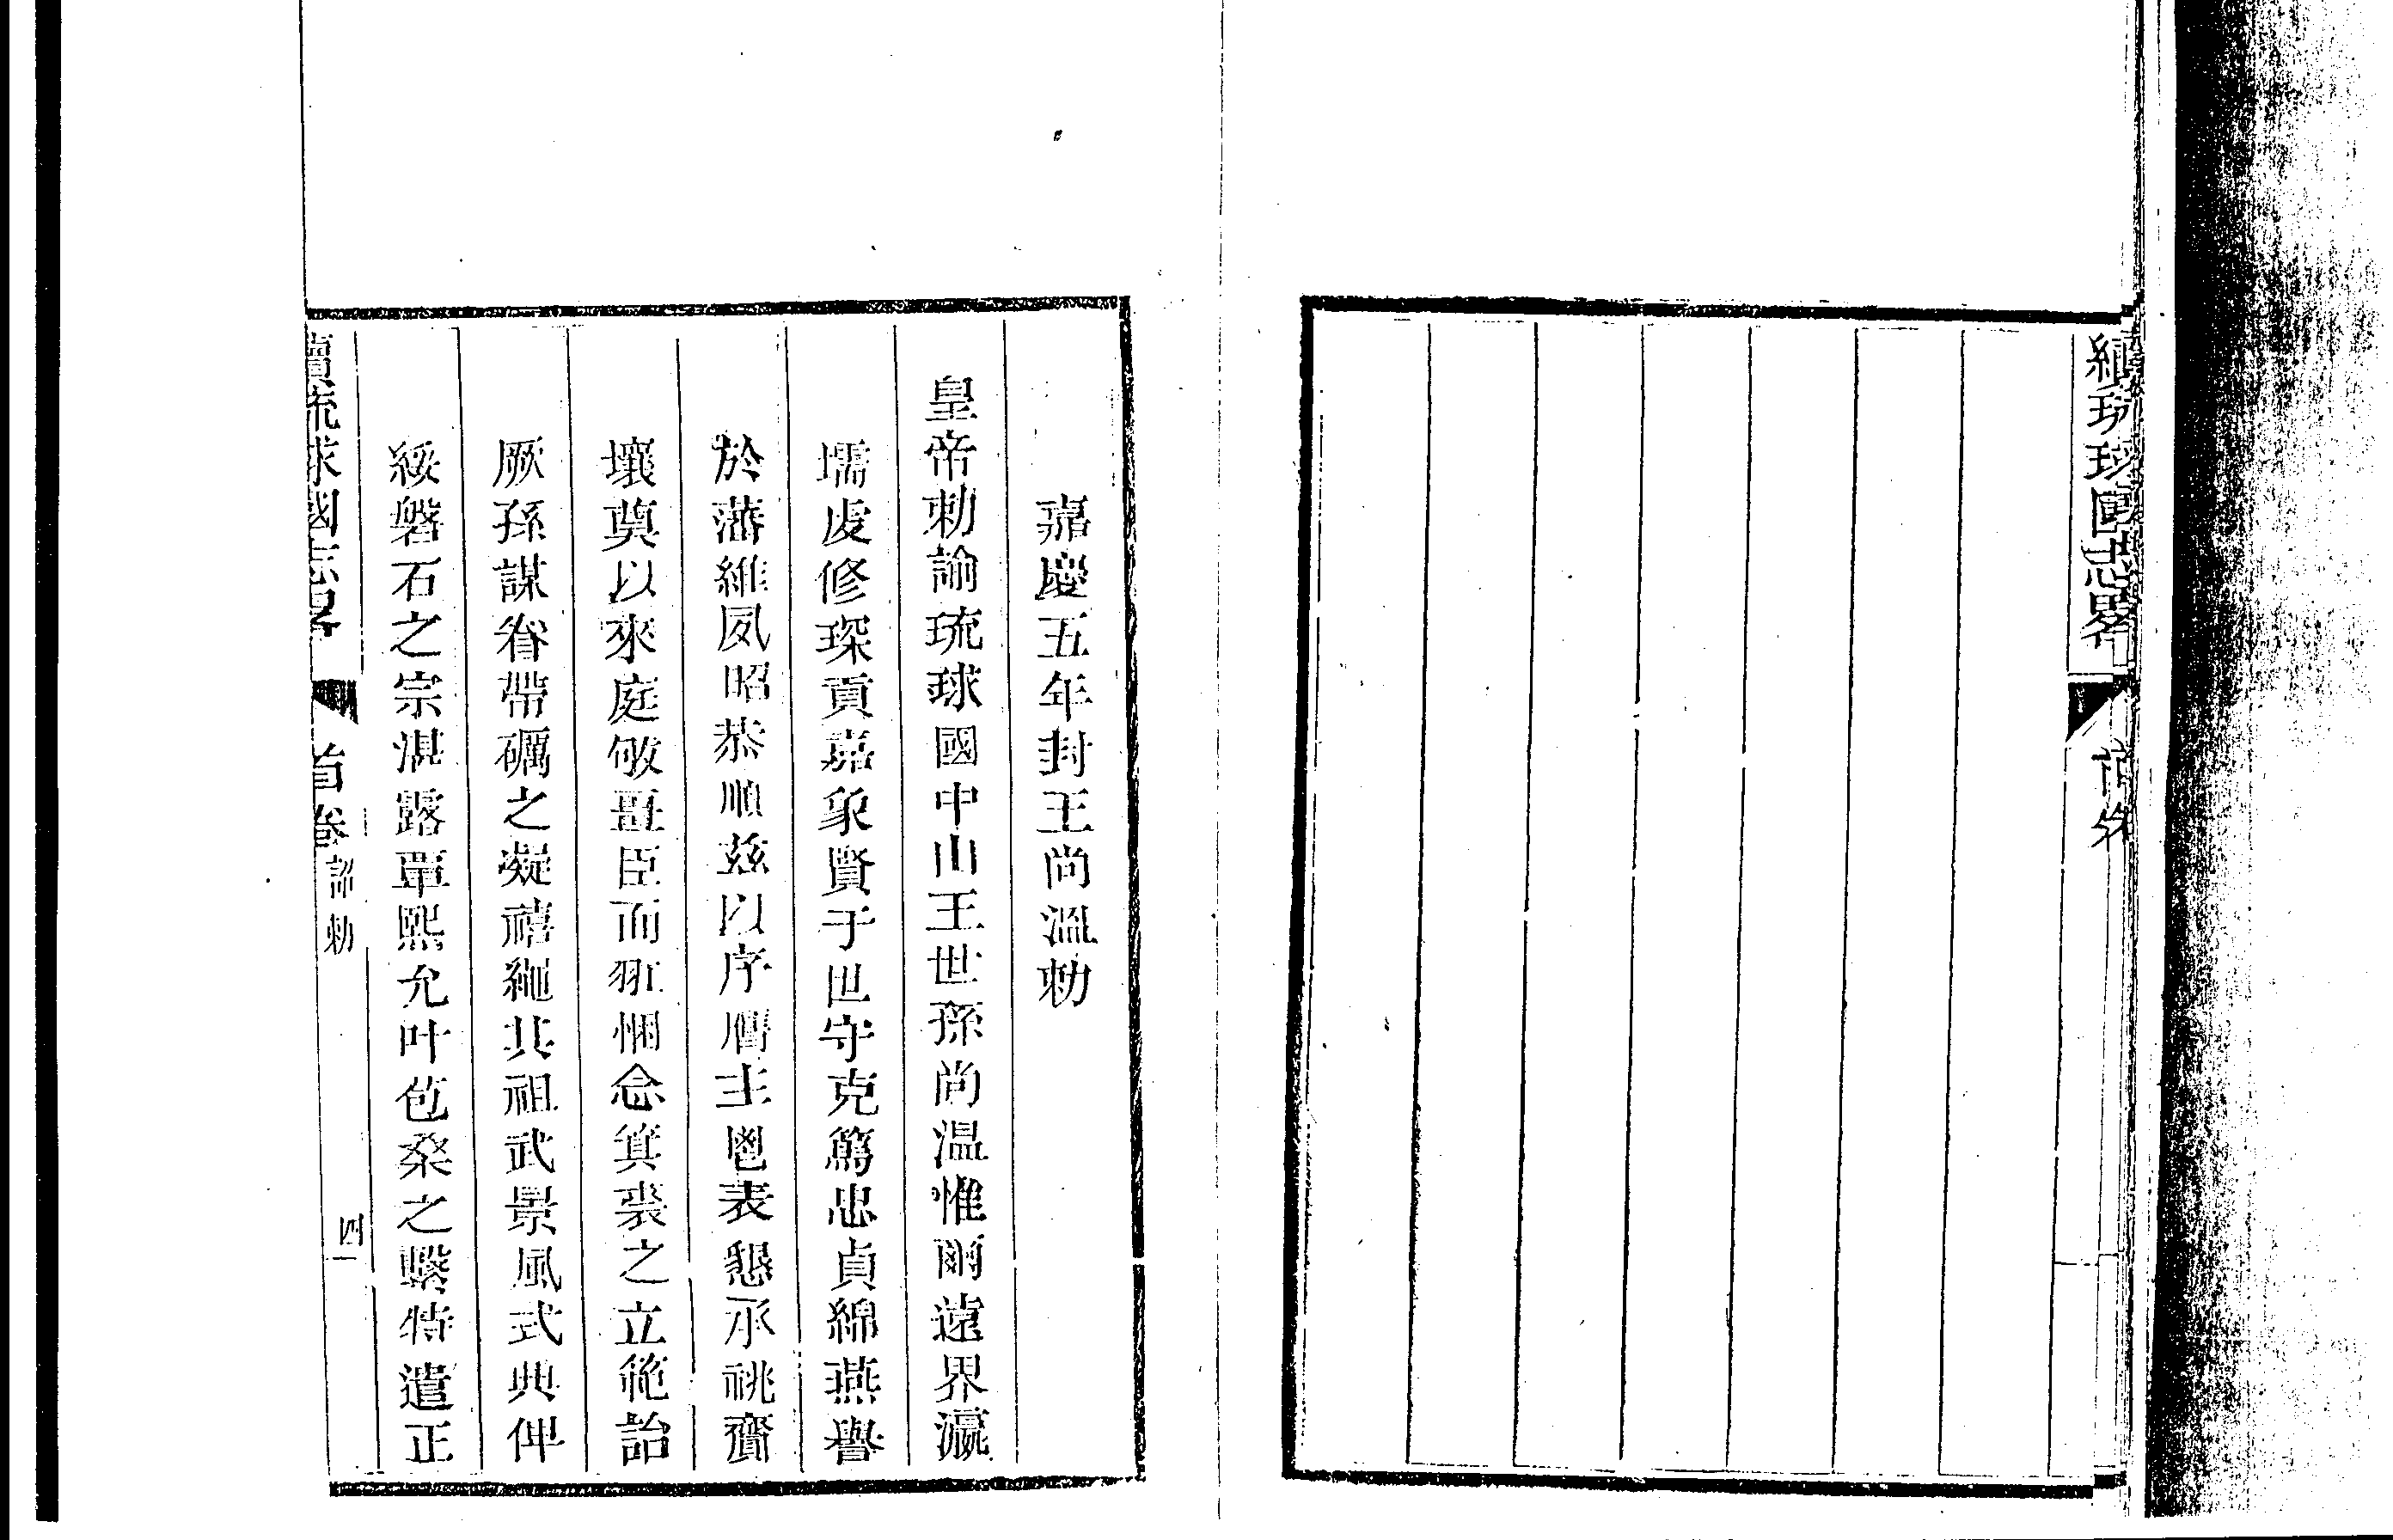 續琉球國志畧
首卷
嘉慶五年封王尚溫勅
皇帝勅諭琉球國中山王世孫尚温惟爾遠界瀛
壖虔修琛貢嘉象賢于世守克篤忠貞綿燕譽
於藩維夙昭恭順兹以序膺主鬯表懇承祧賫
壤奠以來庭倣畺臣而抒悃念箕裘之立範詒
厥孫謀眷帶礪之凝禧繩其祖武景風式典俾
綏磐石之宗湛露覃熙允叶苞桑之繫特遣正
續琉球國志畧
首卷
詔勅
四